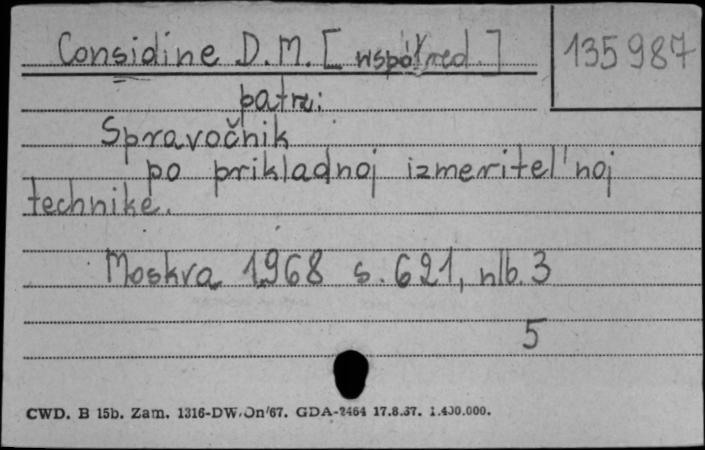 Considine D.M. [współred.]
135 987
patrz:
Spravočnik
po prikladnoj izmeritel'noj
technike.
Moskva 1968 s. 621, nlb. 3
5
CWD. B 15b. Zam. 1316-DW/On/67. GDA-2464 17.8.67. 1.400.000.